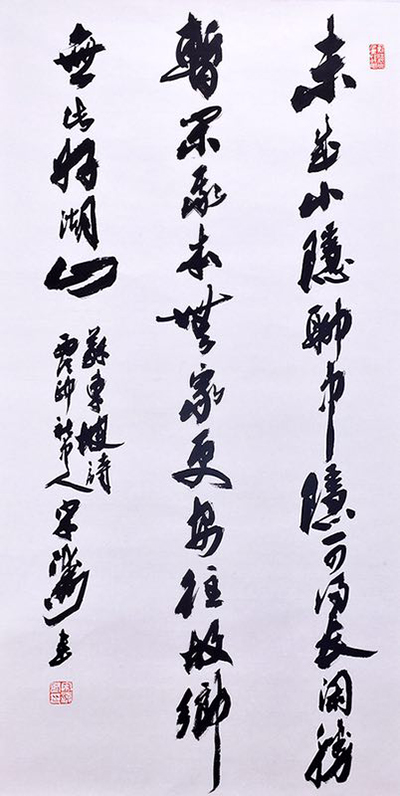 未成小隱聊中隱可得長閑勝
暫閑我本無家更安往故鄉
無此好湖山
蘇東坡詩
印社中人
書